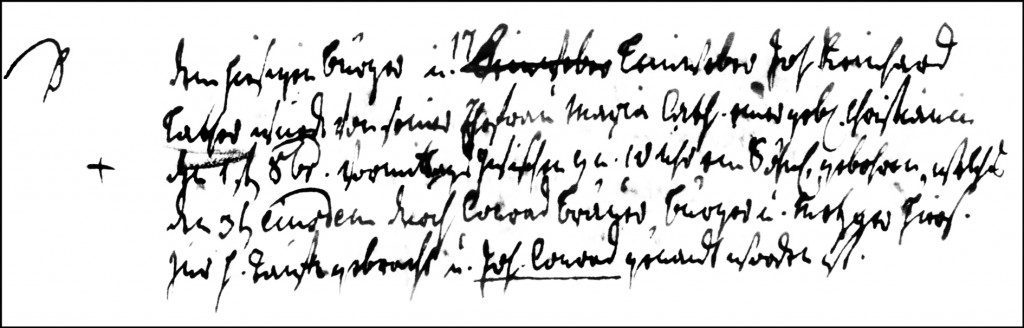 17
dem hiesigen Bürger u. Leinweber Leinweber Joh Reinhard
wurde von seiner Ehefrau Maria Cath. einer geb. Christianin
den 1st 8br. Vormittags zwischen 9 u. 10 Uhr ein Söhnl. gebohren, welches
den 3t ejusdem durch Conrad Bräuer, Bürger u. Metzger hies.
zur h. Taufe gebracht u. Joh. Conrad genandt worden ist.